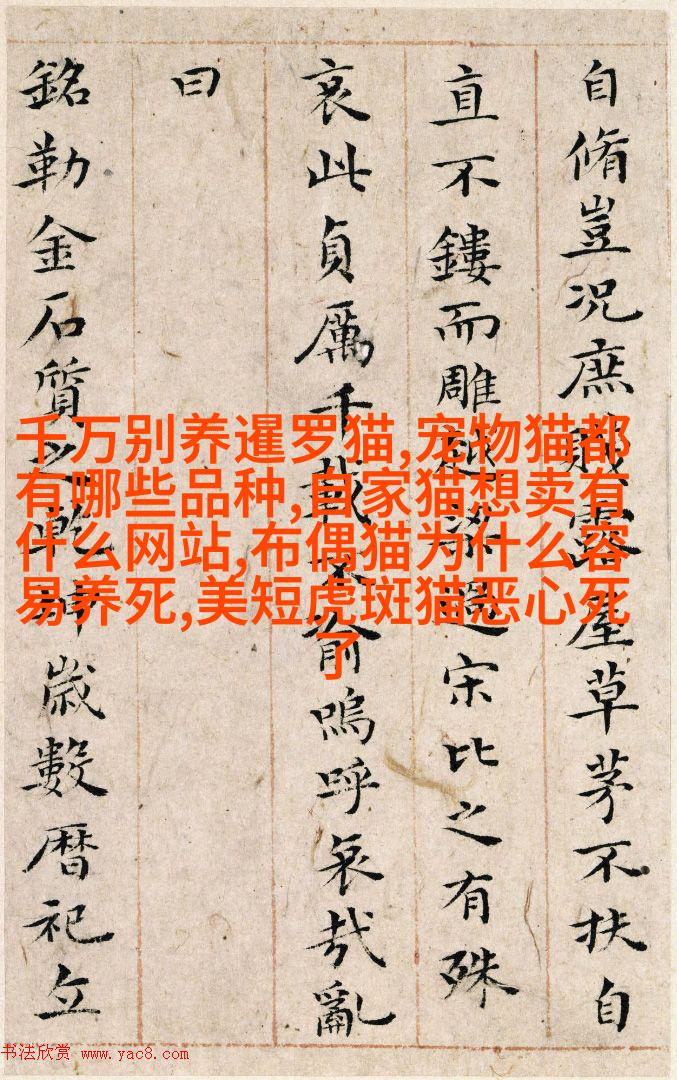 自脩豈况庶賤露屋草茅不扶自
直不鏤而雕越梁過宋比之有殊
哀此貞厲千載不渝嗚呼哀哉亂
曰
銘勒金石質之乾坤歲數暦祀立
千万别养暹罗猫,宠物猫都
有哪些品种,自家猫想卖有
什么网站,布偶猫为什么容
易养死,美短虎斑猫恶心死
了
书法欣赏 www.yac8.com